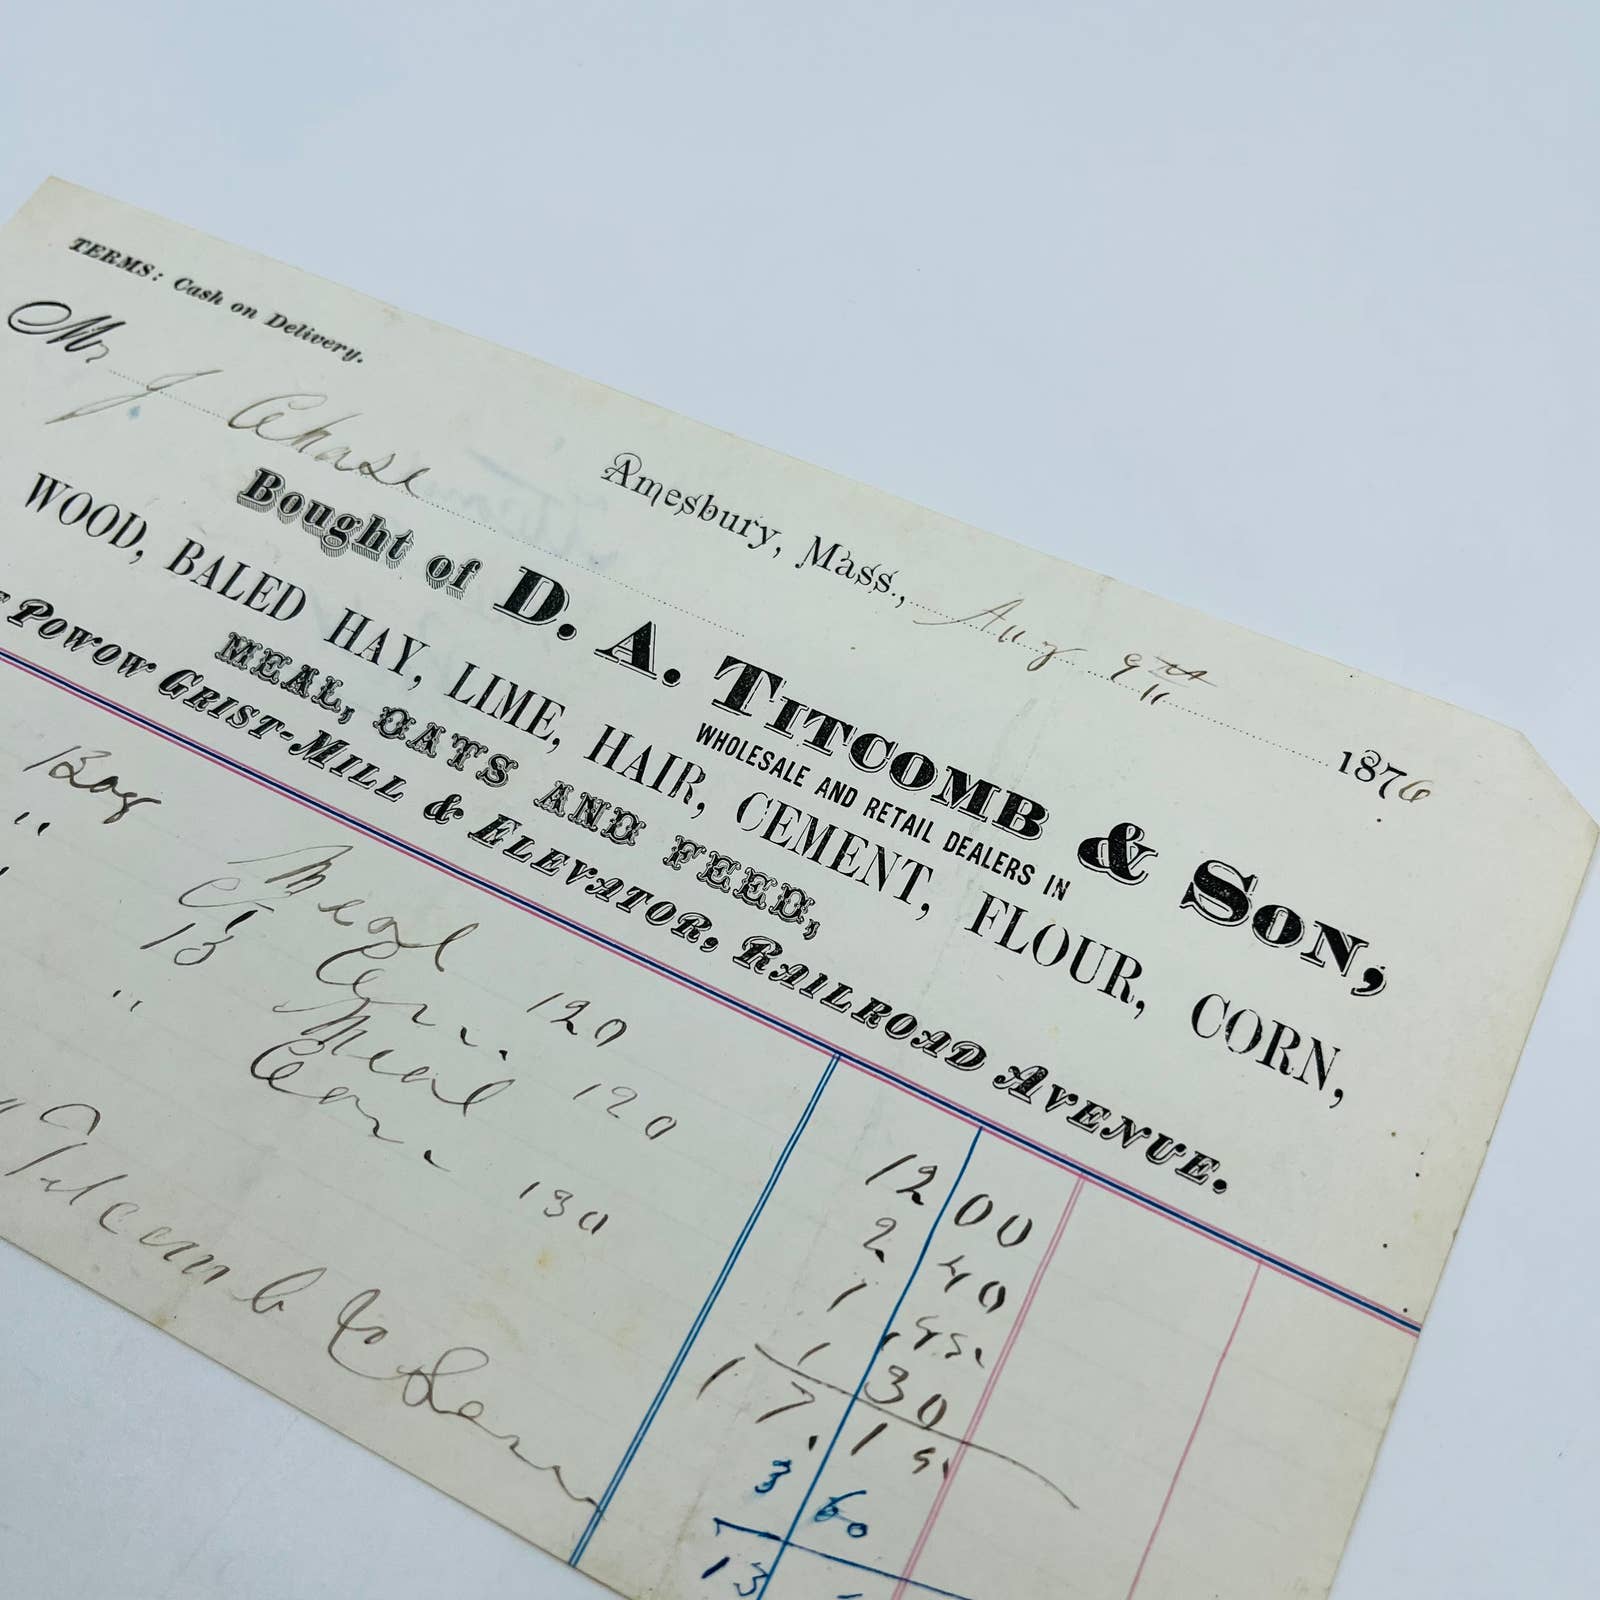 TERMS: Cash on Delivery.
Amesbury, Mass., Aug 9th 1876
Mr J Chase
Bought of D. A. TITCOMB & SON,
WHOLESALE AND RETAIL DEALERS IN
WOOD, BALED HAY, LIME, HAIR, CEMENT, FLOUR, CORN,
MEAL, OATS AND FEED,
POWOW GRIST-MILL & ELEVATOR, RAILROAD AVENUE.
Bag Meal 120 12 00
" Corn 120 2 40
13 Meal 1
" Corn 130 1 30
17.15
Titcomb & Son
3 60
13